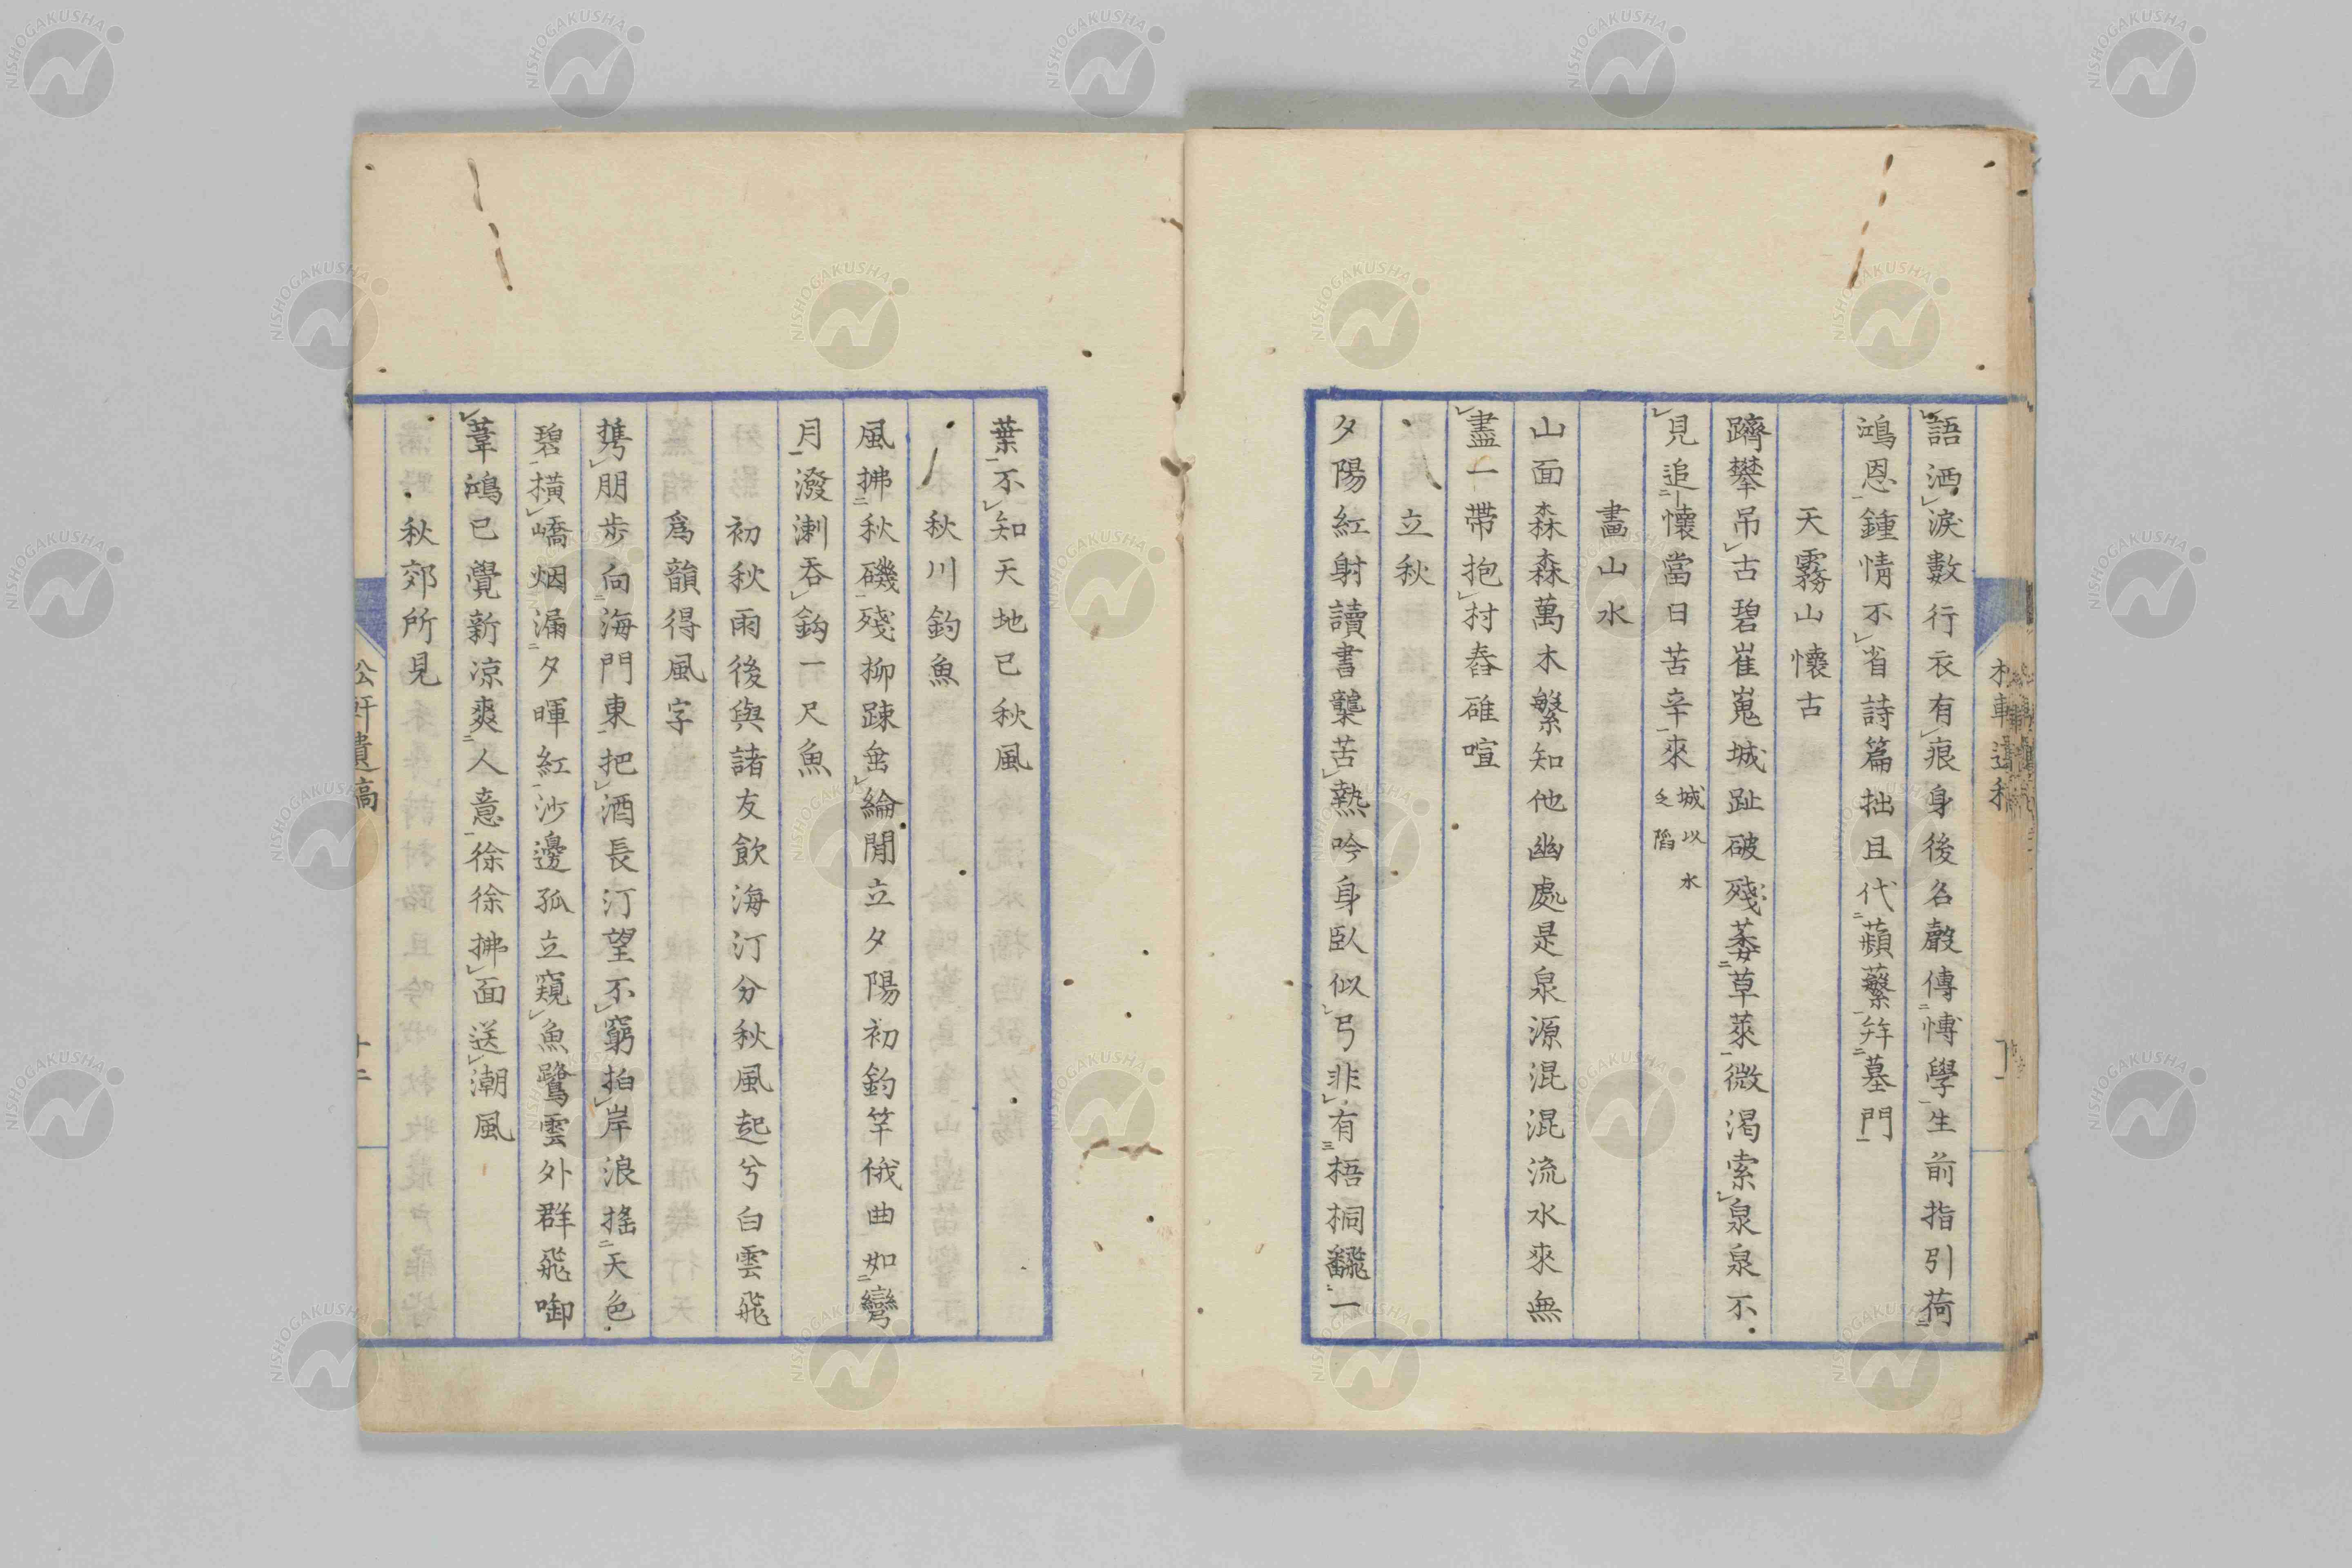 語洒淚數行衣有痕身後名聲傳博學生前指引荷
鴻恩鍾情不省詩篇拙且代蘋蘩拜墓門
天霧山懷古
躋攀吊古碧崔嵬城趾破殘萋草萊微渴索泉泉不
見追懷當日苦辛來城以水乏陷
畫山水
山面森森萬木繁知他幽處是泉源混混流水來無
盡一帶抱村舂碓喧
立秋
夕陽紅射讀書龑苦熱吟身臥似弓非有梧桐飜一
葉不知天地已秋風
秋川釣魚
風拂秋磯殘柳踈垂綸閒立夕陽初釣竿俄曲如彎
月潑溂呑鈎一尺魚
初秋雨後與諸友飲海汀分秋風起兮白雲飛
爲韻得風字
携朋步向海門東把酒長汀望不窮拍岸浪搖天色
碧橫嶠烟漏夕暉紅沙邊孤立窺魚鷺雲外群飛啣
葦鴻已覺新凉爽人意徐徐拂面送潮風
秋郊所見
松軒遺稿
十二